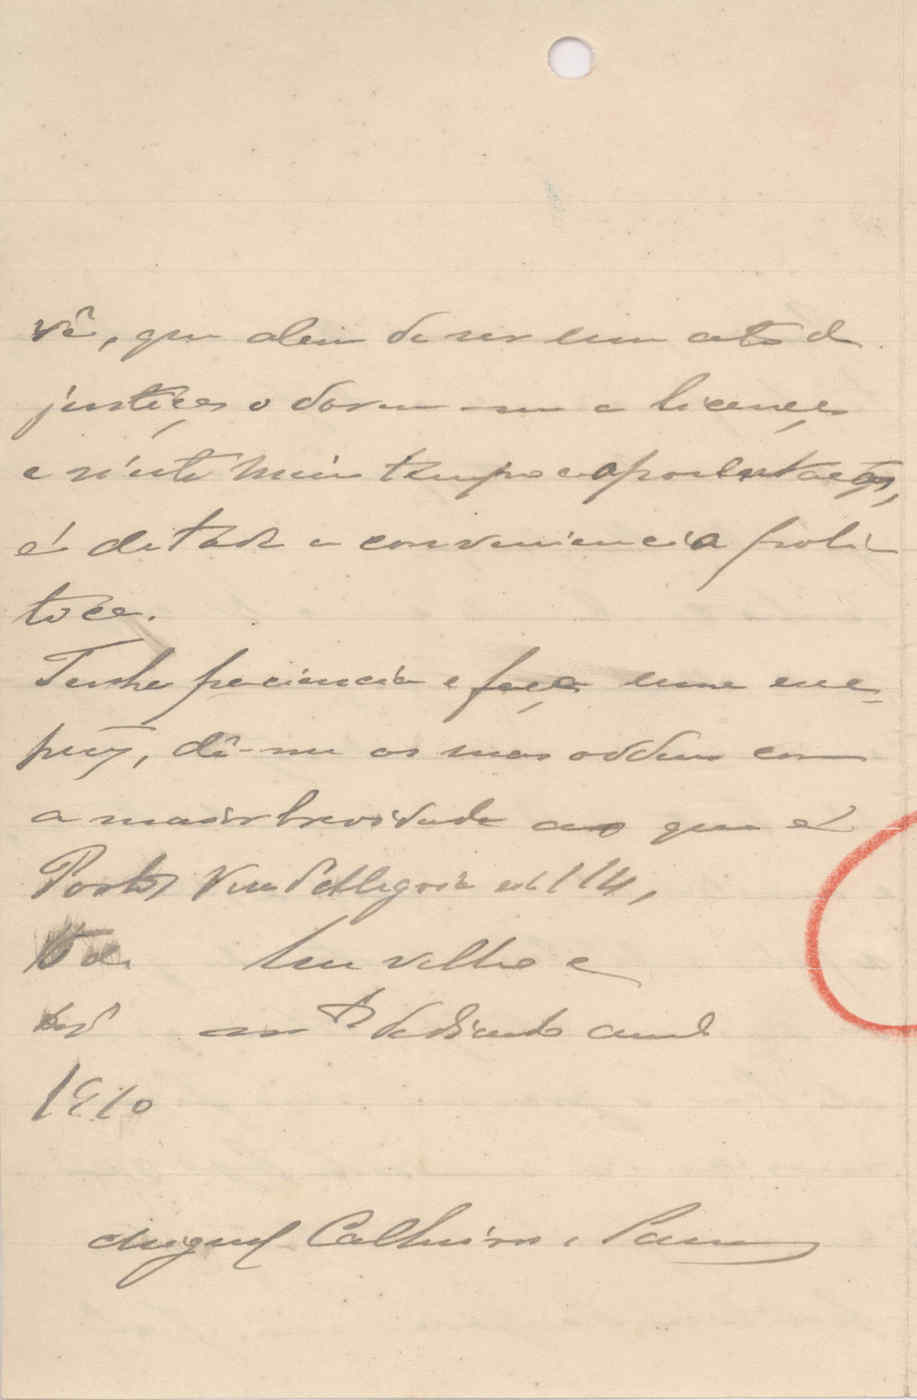 vê, que alem de ser um acto de
justiça o darem-me a licença
e n'este meio tempo a aposentação,
é de toda a conveniencia poli-
tica.
Tenha paciencia e faça uma exce-
pção, dê-me as suas ordens com
a maior brevidade ao que é
Porto Rua d'Allegria nº 114,
15 de Seu velho e
1910
Miguel Calheiros